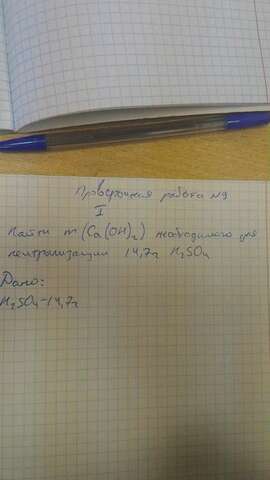 Проверочная работа №9
I
Найти m (Ca(OH)₂) необходимого для
нейтрализации 14,7г H₂SO₄
Дано:
H₂SO₄-14,7г